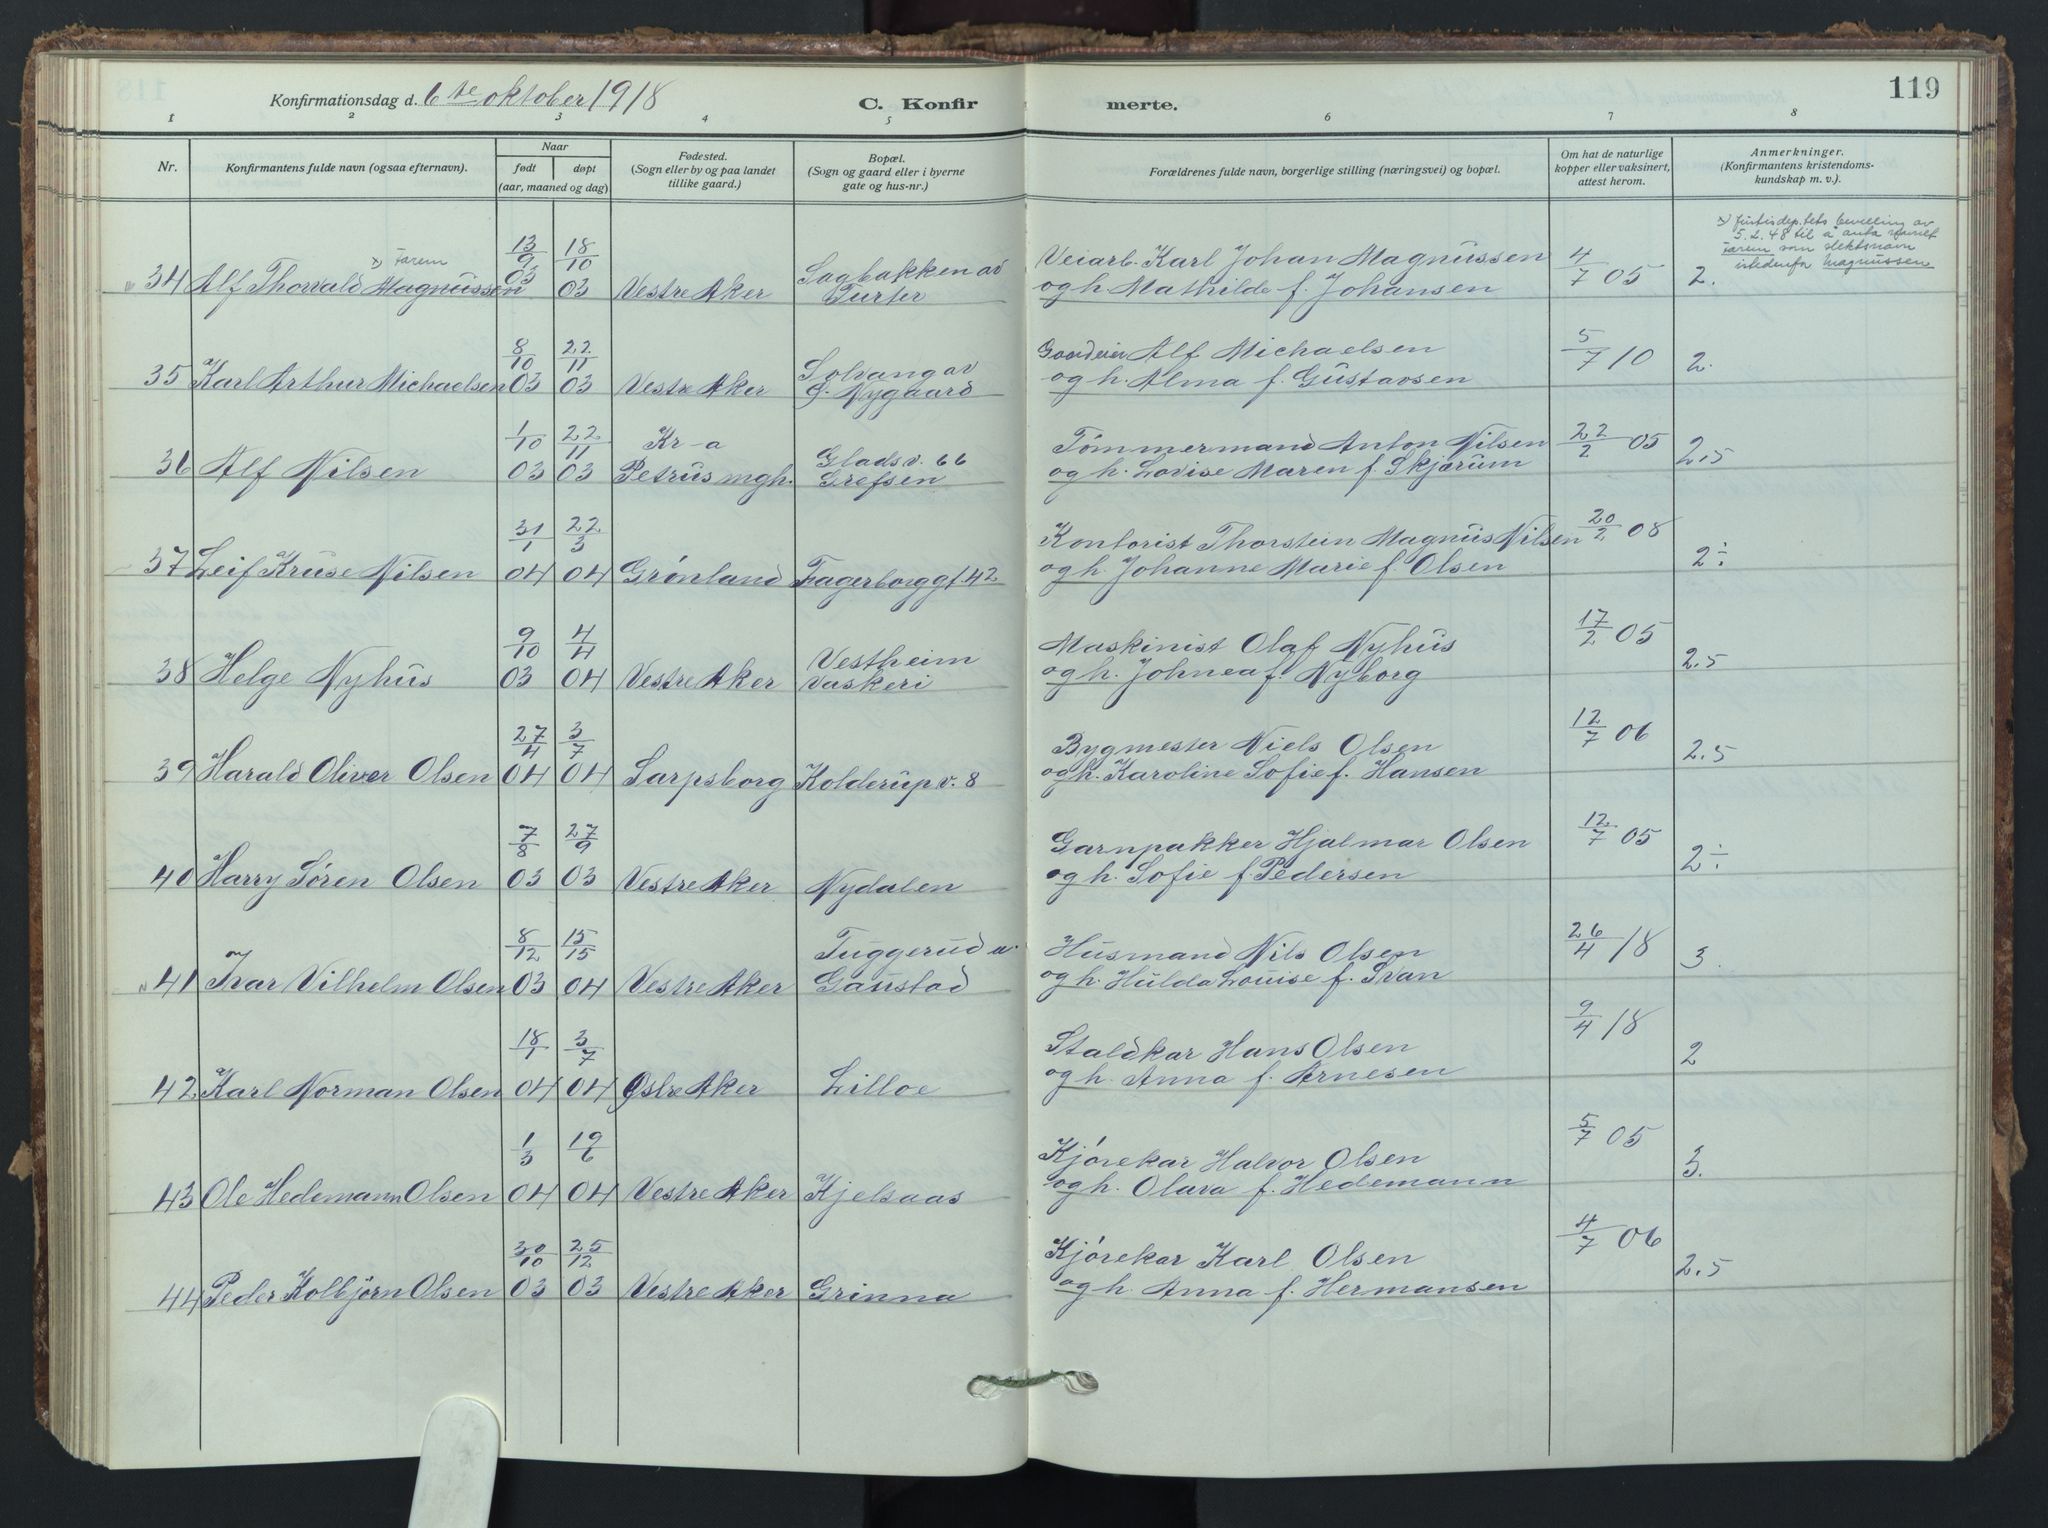 119
Konfirmationsdag d. 6te oktober 1918 C. Konfirmerte.
1 2 3 4 5 6 7 8
Nr. Konfirmantens fulde navn (ogsaa efternavn). Naar født døpt (aar, maaned og dag) Fødested. (Sogn eller by og paa landet tillike gaard.) Bopæl. (Sogn og gaard eller i byerne gate og hus-nr.) Forældrenes fulde navn, borgerlige stilling (næringsvei) og bopæl. Om hat de naturlige kopper eller vaksinert, attest herom. Anmerkninger. (Konfirmantens kristendoms-kundskap m. v.).
x) Justisdeptets bevilling av
5.2.48 til å anta navnet
Farem som slektsnavn
istedenfor Magnussen
x) Farem 13/9 18/10 Sagbakken av Veiarb. Karl Johan Magnussen 4/7 05
34 Alf Thorvald Magnussen 03 03 Vestre Aker Turter og h. Mathilde f. Johansen 2.
8/10 22/11 Solvang av Gaardeier Alf Michaelsen 5/7 10
35 Karl Arthur Michaelsen 03 03 Vestre Aker G. Nygaard og h. Alma f. Gustavsen 2.
1/10 22/11 Kr-a Gladsv. 66 Tømmermand Anton Nilsen 22/2 05
36 Alf Nilsen 03 03 Petrus mgh. Grefsen og h. Lovise Maren f. Skjærum 2.5
31/1 22/3 Kontorist Thorstein Magnus Nilsen 20/2 08
37 Leif Kruse Nilsen 04 04 Grønland Fagerborggt. 42 og h. Johanne Marie f. Olsen 2÷
9/10 4/4 Vestheim Maskinist Olaf Nyhus 17/2 05
38 Helge Nyhus 03 04 Vestre Aker vaskeri og h. Johnea f. Nyborg 2.5
27/4 3/7 Bygmester Niels Olsen 12/7 06
39 Harald Oliver Olsen 04 04 Sarpsborg Kolderupv. 8 og h. Karoline Sofie f. Hansen 2.5
7/8 27/9 Garnpakker Hjalmar Olsen 12/7 05
40 Harry Søren Olsen 03 03 Vestre Aker Nydalen og h. Sofie f. Pedersen 2÷
8/12 15/15 Tuggerud u. Husmand Nils Olsen 26/4 18
41 Ivar Vilhelm Olsen 03 04 Vestre Aker Gaustad og h. Hulda Louise f. Svan 3.
18/1 3/7 Staldkar Hans Olsen 9/4 18
42 Karl Norman Olsen 04 04 Østre Aker Lilloe og h. Anna f. Arnesen 2
1/3 19/6 Kjørekar Halvor Olsen 5/7 05
43 Ole Hedemann Olsen 04 04 Vestre Aker Kjelsaas og h. Olava f. Hedemann 3.
30/10 25/12 Kjørekar Karl Olsen 4/7 06
44 Peder Kolbjørn Olsen 03 03 Vestre Aker Grinna og h. Anna f. Hermansen 2.5